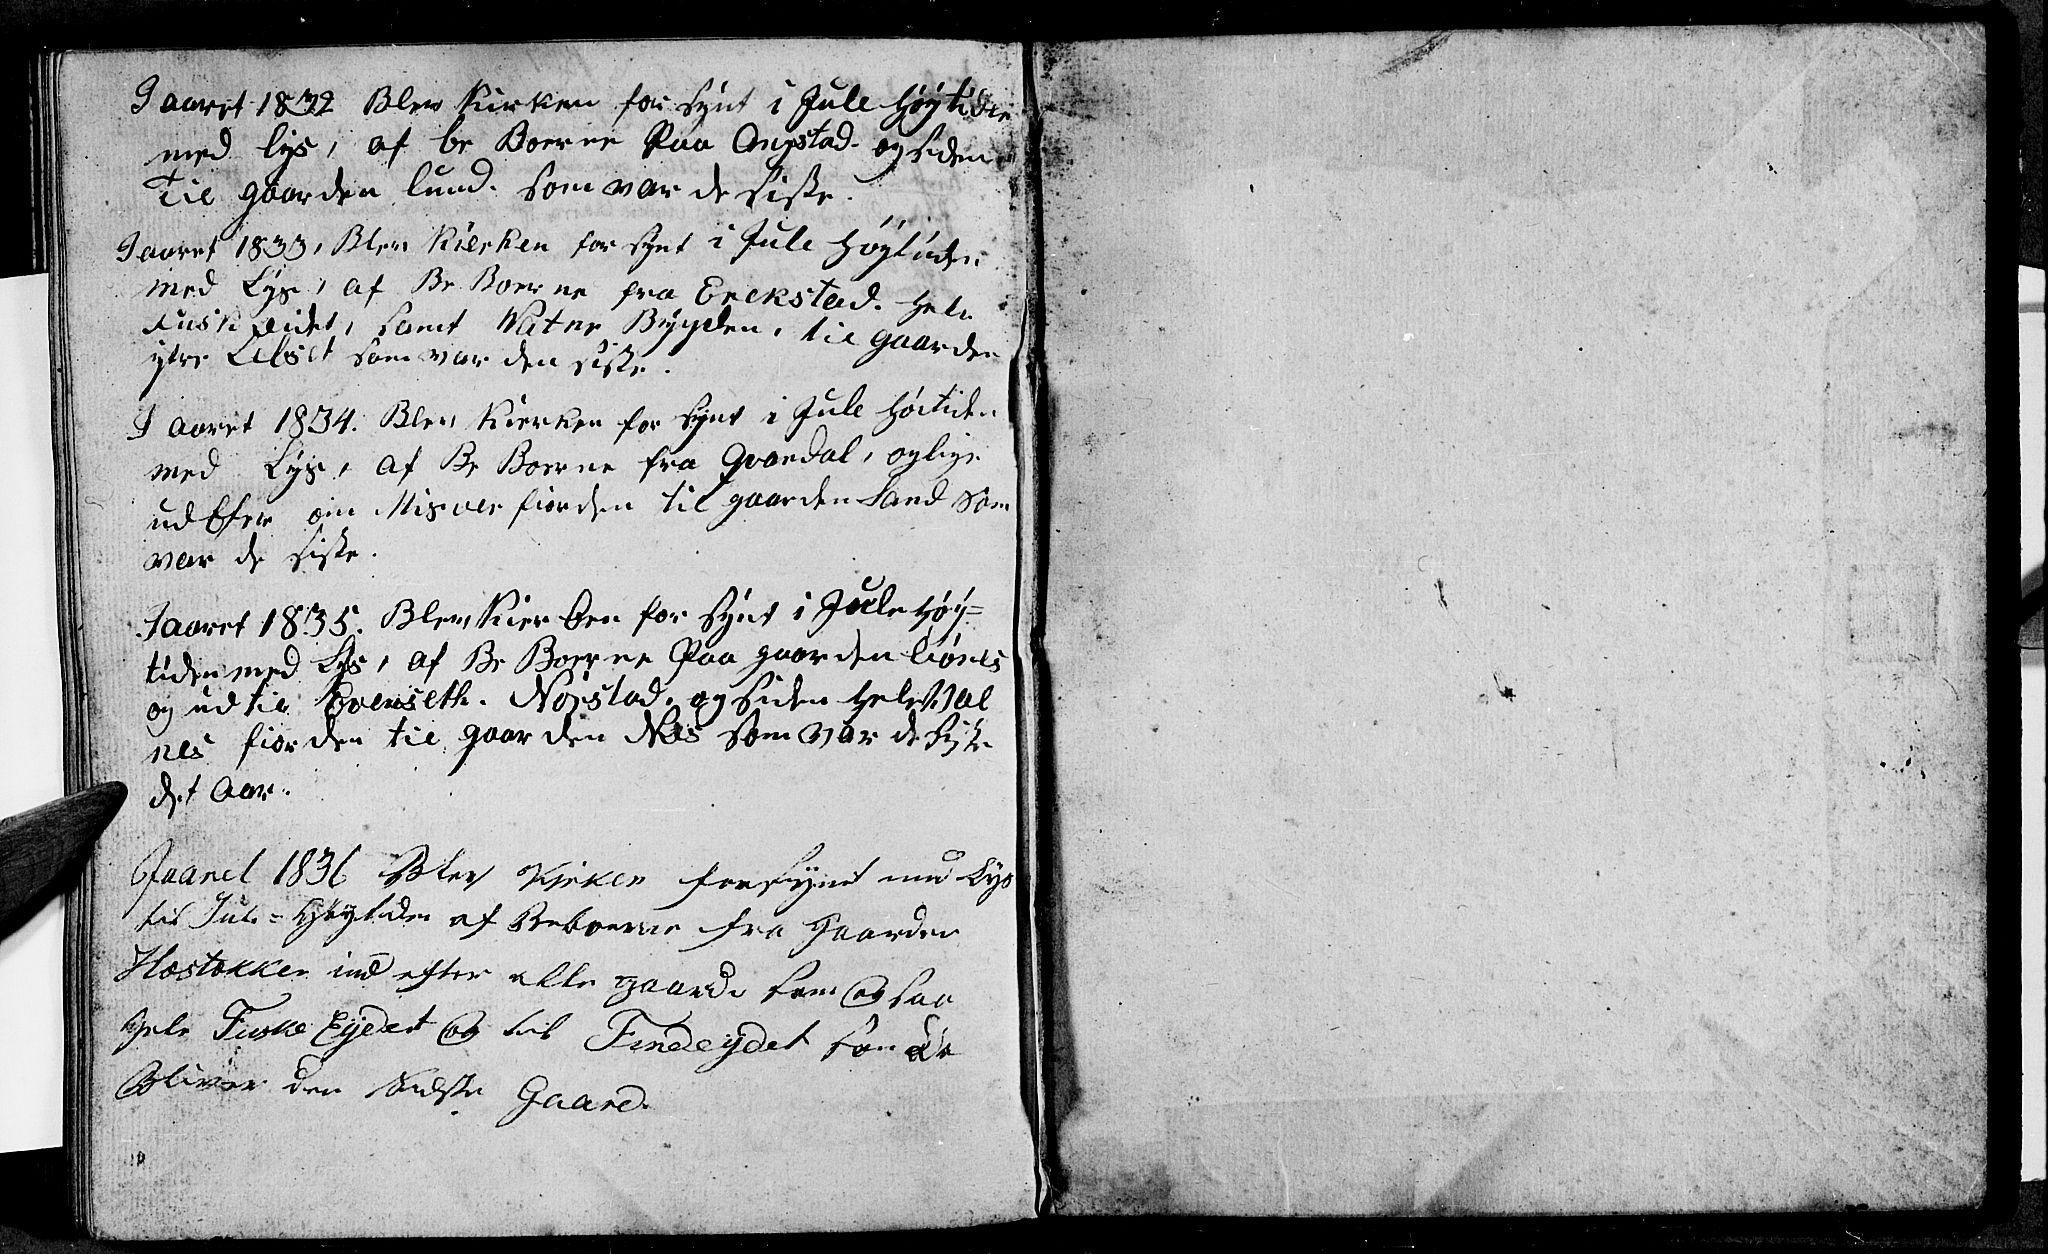 I aaret 1832 Blev Kirken for synt i Jule Høytiden
med lys, af be Boerne Paa Ongstad og siden
Til gaarden lund. som var de siste.
I aaret 1833, Blev Kierken for synt i Jule Høytiden
med Lys, af Be Boerne fra Erekstad. hele
Fusk Eidet, samt Vatne Bygden, til gaarden
ytre Lilset som var den siste.
I aaret 1834. Blev Kierken for synt i Jule Høitiden
med Lys, af Be Boerne fra Qvændal, og lige
ud Efter om Misvær fiorden til gaarden Sand som
var de siste.
I aaret 1835. Blev Kierken for synt i Jule Høy=
tiden med Lys, af Be Boerne Paa gaarden Liønes
og ud til Evenseth. Nøistad. og siden hele Val
nes fiorden til gaarden Næs som var de syste
det Aar.
I aaret 1836 Blev Kirken forsynet med Lys
til Jule=Høytiden af Beboerne fra Gaarden
Hæstøkken ind efter alle gaarde som Og saa
hele Fuske Eydet Og til Fineideydet som
Bliver den sidste Gaard.